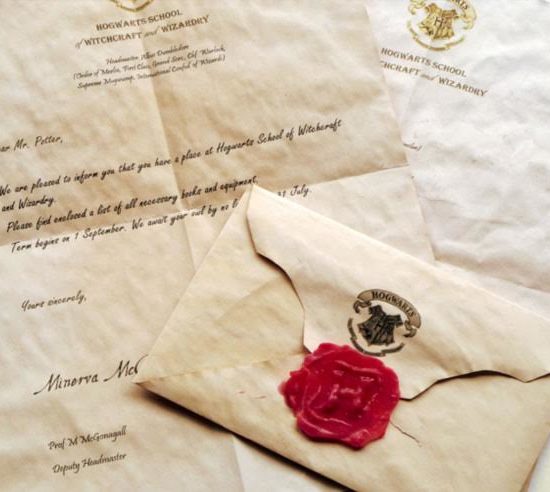 HOGWARTS SCHOOL
of WITCHCRAFT and WIZARDRY
Headmaster: Albus Dumbledore
(Order of Merlin, First Class, Grand Sorc., Chf. Warlock,
Supreme Mugwump, International Confed. of Wizards)
ar Mr. Potter,
We are pleased to inform you that you have a place at Hogwarts School of Witchcraft
and Wizardry.
Please find enclosed a list of all necessary books and equipment.
Term begins on 1 September. We await your owl by no l 31 July.
Yours sincerely,
Minerva McG
Prof M McGonagall
Deputy Headmaster
HOGWARTS SCHOOL
TCHCRAFT and WIZARDRY
HOGWARTS